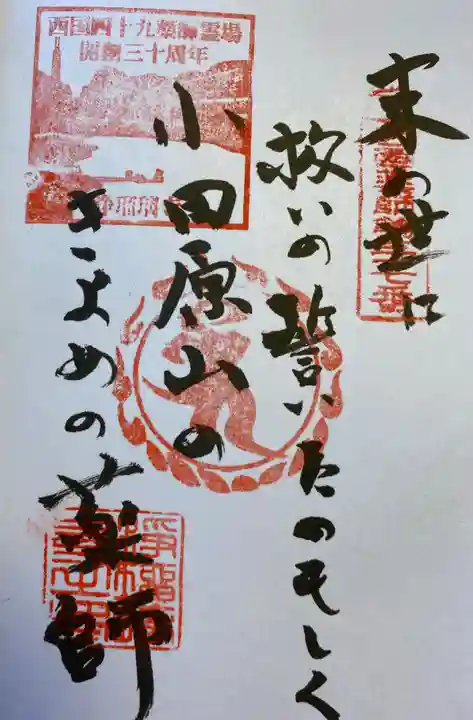 末の世に
救いの誓いたのもしく
小田原山の
きよめの薬師
西国四十九薬師霊場
開創三十周年
浄瑠璃寺